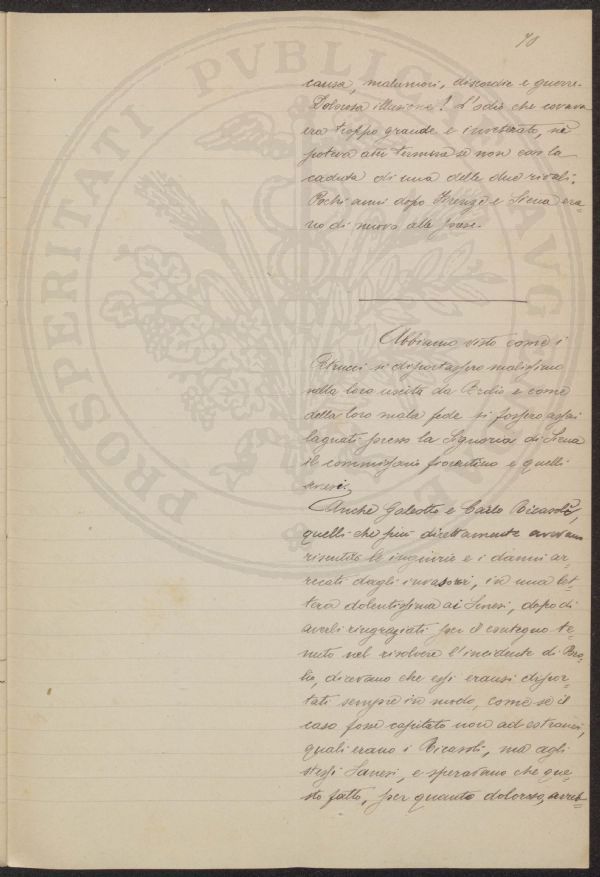 70
causa, malumori, discordie e guerre.
Dolorosa illusione! L'odio che covava
era troppo grande e inveterato, nè
poteva aver termine se non con la
caduta di una delle due rivali.
Pochi anni dopo Firenze e Siena era=
no di nuovo alle prese.
Abbiamo visto come i
Petrucci si diportassero malissimo
nella loro uscita da Brolio e come
della loro mala fede si fossero assai
lagnati presso la Signoria di Siena
il commissario fiorentino e quelli
senesi.
Anche Galeotto e Carlo Ricasoli,
quelli che più direttamente avevano
risentito le ingiurie e i danni ar=
recati dagli invasori, in una let=
tera dolentissima ai Senesi, dopo di
averli ringraziati per il contegno te=
nuto nel risolvere l'incidente di Bro=
lio, dicevano che essi eransi dipor=
tati sempre in modo, come se il
caso fosse capitato non ad estranei,
quali erano i Ricasoli, ma agli
stessi Sanesi, e speravano che que=
sto fatto, per quanto doloroso, avreb=
PROSPERITATI PVBLICAE AVGENDAE